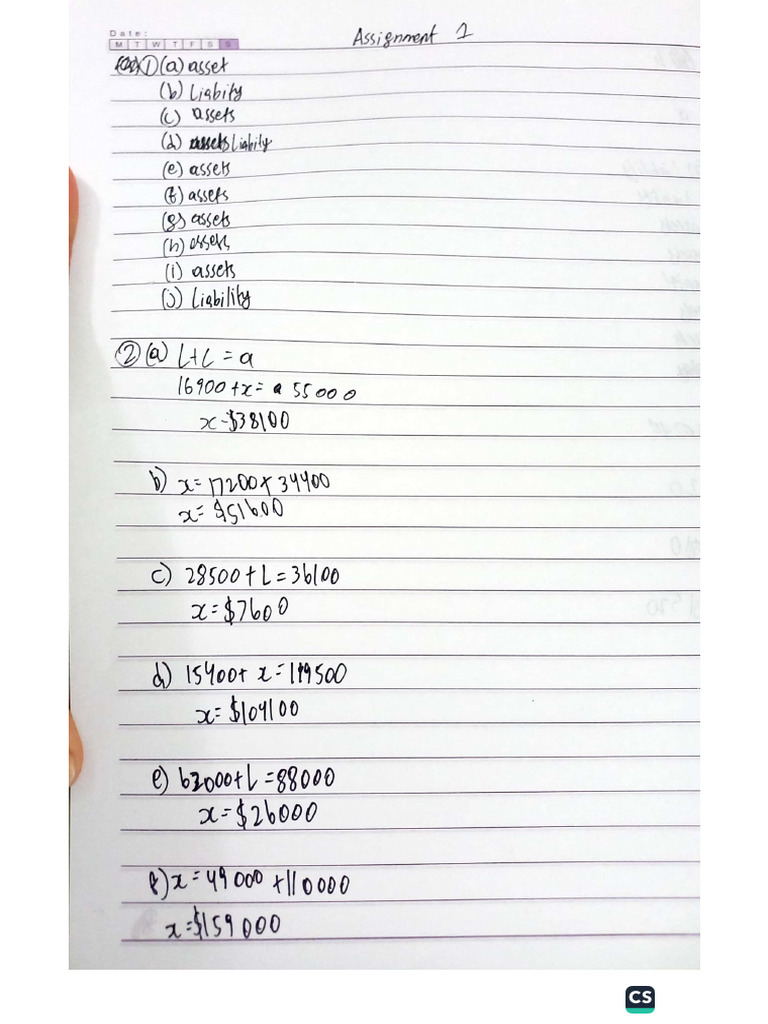 Assignment 1
Date:
M T W T F S S
① (a) asset
(b) Liabity
(c) assets
(d) Liability
(e) assets
(f) assets
(g) assets
(h) assets
(i) assets
(j) Liability
② (a) L+C = a
16900+x= 55000
x=$38100
b) x= 17200+34400
x= $51600
c) 28500+L=36100
x=$7600
d) 15400+ x=119500
x=$104100
e) 62000+L=88000
x=$26000
f) x=49000+110000
x=$159000
CS